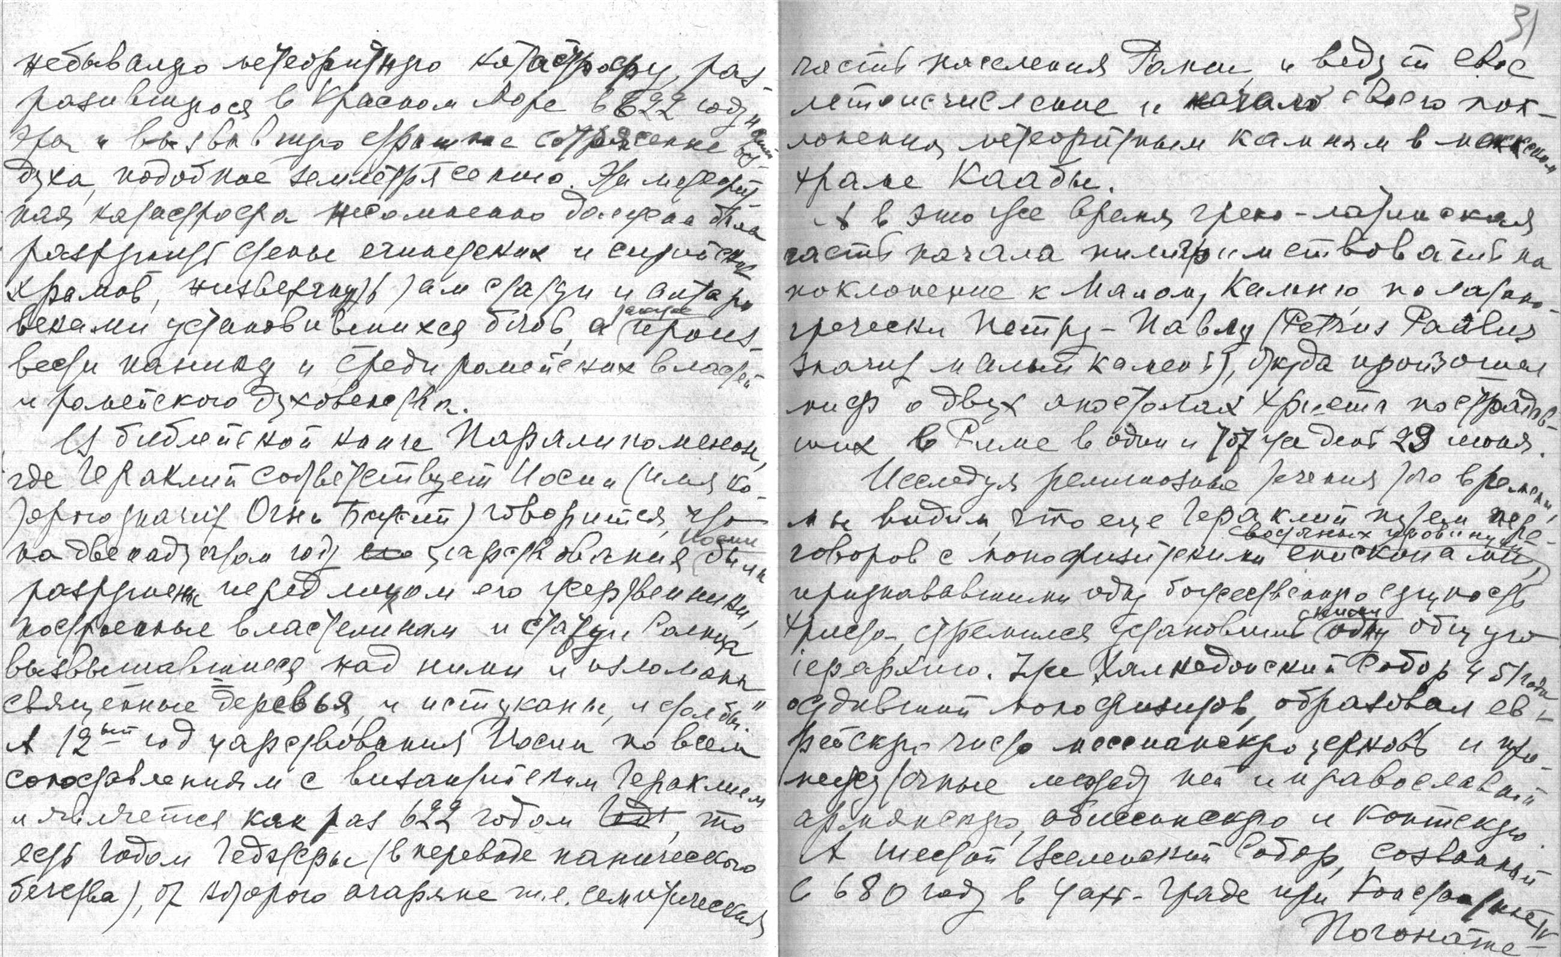 небывалую метеоритную катастрофу, раз
разившуюся в Красном Море в 622 году н.
эры и вызвавшую страшное сотрясение воз
духа, подобное землетрясению. Эта метеорит
ная катастрофа несомненно должна была
разрушить стены египетских и сирийских
храмов, низвергнуть там статуи и алтари
веками установившихся богов, а также произ-
вести панику и среди ромейских властей
и ромейского духовенства.
И в библейской книге Паралипоменон,
где Гераклий соответствует Иосии (имя ко-
торого значит Огнь Божий) говорится, что
на двенадцатом году его царствования Иосии были
разрушены перед лицом его жертвенники,
построенные властелинам и статуи Солнца
возвышавшиеся над ними и изломаны
священные деревья, и истуканы, и столбы."
А 12ый год царствования Иосии по всем
сопоставлениям с византийским Гераклием
и является как раз 622 годом, то
есть годом Геджры (в переводе панического
бегства), от которого агаряне т.е. семитическая
31
часть населения Ромеи, и ведут свое
летоисчисление и начало своего пок-
лонения метеоритным камням в меккском
храме Каабы.
А в это же время греко-латинская
часть начала пилигримствовать на
поклонение к Малому Камню, по латино-
гречески Петру-Павлу (Petrus Paulus
значит малый камень), откуда произошел
миф о двух апостолах Христа пострадав-
ших в Риме в один и тот же день 29 июня.
Исследуя религиозные течения того времени,
мы видим, что еще Гераклий путем пере-
говоров с монофизитскими восточных провинций епископами,
признававшими одну божественную сущность
Христа, стремился установить с ними одну общую
іерархию. Уже Халкедонский Собор 451 года
осудивший монофизитов, образовал ев-
рейскую чисто мессианскую церковь и про-
межуточные между ней и православной
армянскую, абиссинскую и коптскую.
А шестой Вселенский Собор, созванный
в 680 году в Царь-Граде при Константине IV
Погонате-